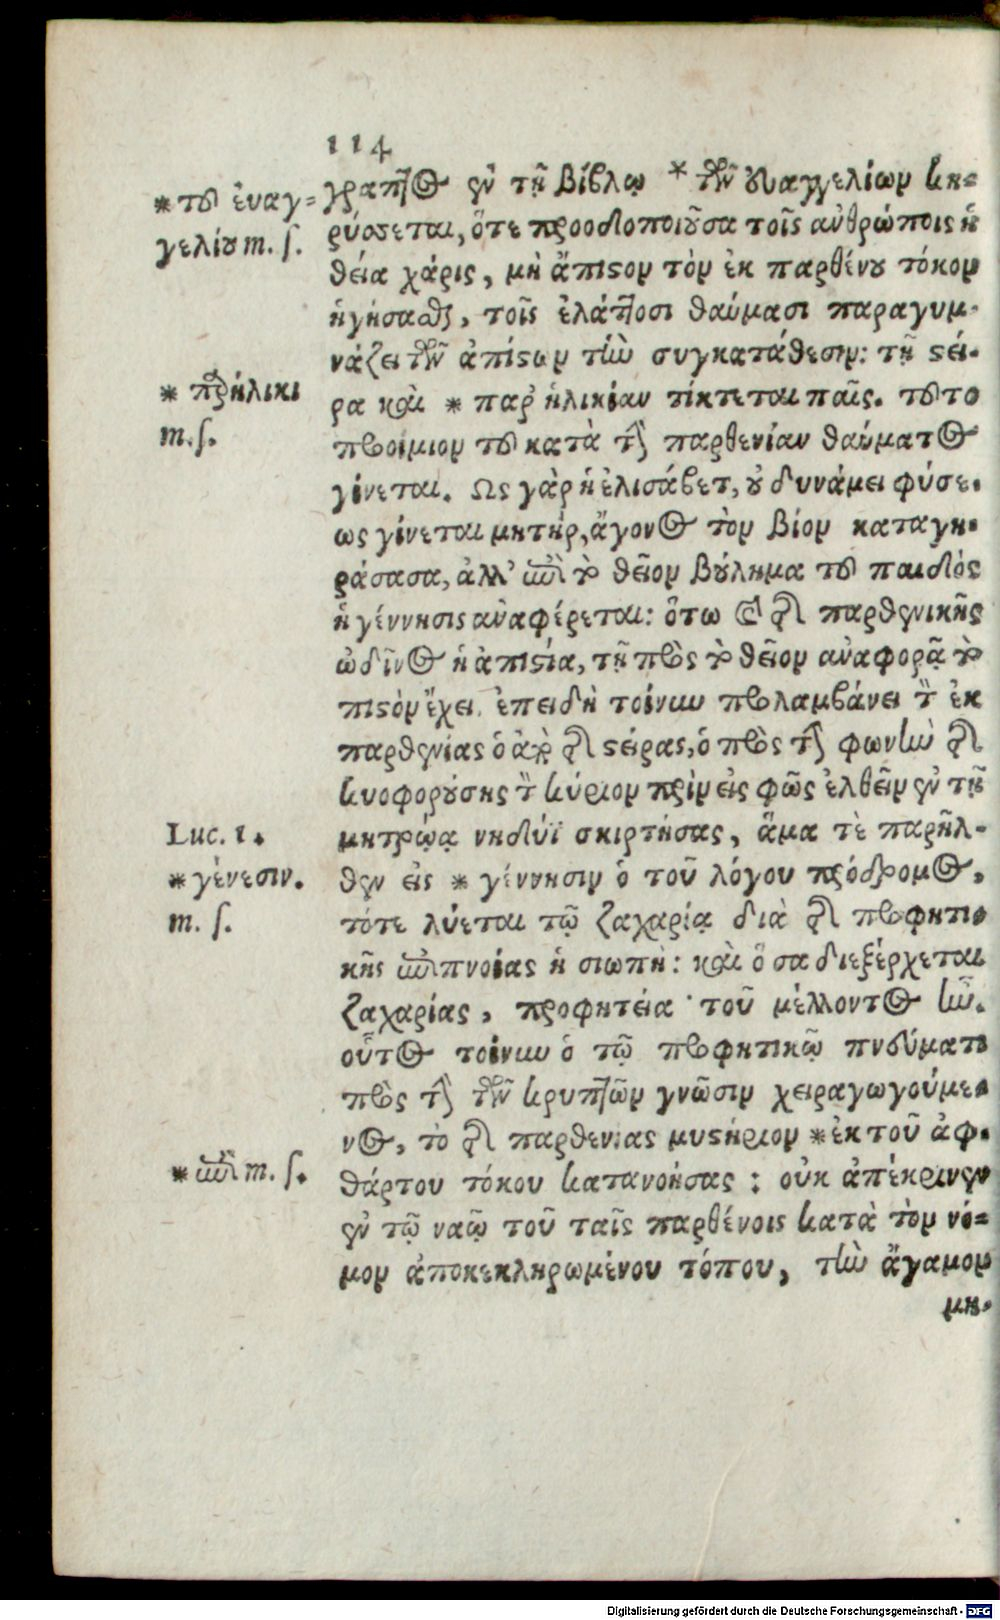 114
γραπτος ἐν τῇ βίβλῳ * τῶν εὐαγγελίων κη-
ρύσσεται, ὅτε προοδοποιοῦσα τοῖς ἀνθρώποις ἡ
θεία χάρις, μὴ ἄπιστον τὸν ἐκ παρθένου τόκον
ἡγήσασθαι, τοῖς ἐλάττοσι θαύμασι παραγυμ-
νάζει τῶν ἀπίστων τὴν συγκατάθεσιν: τῇ στεί-
ρα καὶ * παρ' ἡλικίαν τίκτεται παῖς. τοῦτο
προοίμιον τοῦ κατὰ τὴν παρθενίαν θαύματος
γίνεται. Ως γὰρ ἡ ἐλισάβετ, οὐ δυνάμει φύσε-
ως γίνεται μητὴρ, ἄγονος τὸν βίον καταγη-
ράσασα, ἀλλ' ἐπὶ τὸ θεῖον βούλημα τοῦ παιδὸς
ἡ γέννησις ἀναφέρεται: οὕτω καὶ τῆς παρθενικῆς
ὠδῖνος ἡ ἀπιστία, τῇ πρὸς τὸ θεῖον ἀναφορᾷ τὸ
πιστὸν ἔχει. ἐπειδὴ τοίνυν προλαμβάνει τὸν ἐκ
παρθενίας ὁ ἀπὸ τῆς στείρας, ὁ πρὸς τὴν φωνὴν τῆς
κυοφορούσης τὸν κύριον πρὶν εἰς φῶς ἐλθεῖν ἐν τῇ
μητρῴᾳ νηδύϊ σκιρτήσας, ἅμα τὲ παρῆλ-
θεν εἰς * γέννησιν ὁ τοῦ λόγου πρόδρομος,
τότε λύεται τῷ ζαχαρίᾳ διὰ τῆς προφητι-
κῆς ἐπιπνοίας ἡ σιωπὴ: καὶ ὅσα διεξέρχεται
ζαχαρίας, προφητεία τοῦ μέλλοντος ἦν.
οὗτος τοίνυν ὁ τῷ προφητικῷ πνεύματι
πρὸς τὴν τῶν κρυπτῶν γνῶσιν χειραγωγούμε-
νος, τὸ τῆς παρθενίας μυστήριον * ἐκ τοῦ ἀφ-
θάρτου τόκου κατανοήσας: οὐκ ἀπέκρινεν
ἐν τῷ ναῷ τοῦ ταῖς παρθένοις κατὰ τὸν νό-
μον ἀποκεκληρωμένου τόπου, τὴν ἄγαμον
μη-
* τοῦ ἐυαγ-
γελίου m. s.
m. s.
Luc. 1.
* γένεσιν.
m. s.
* ἐπὶ m. s.
Digitalisierung gefördert durch die Deutsche Forschungsgemeinschaft - DFG